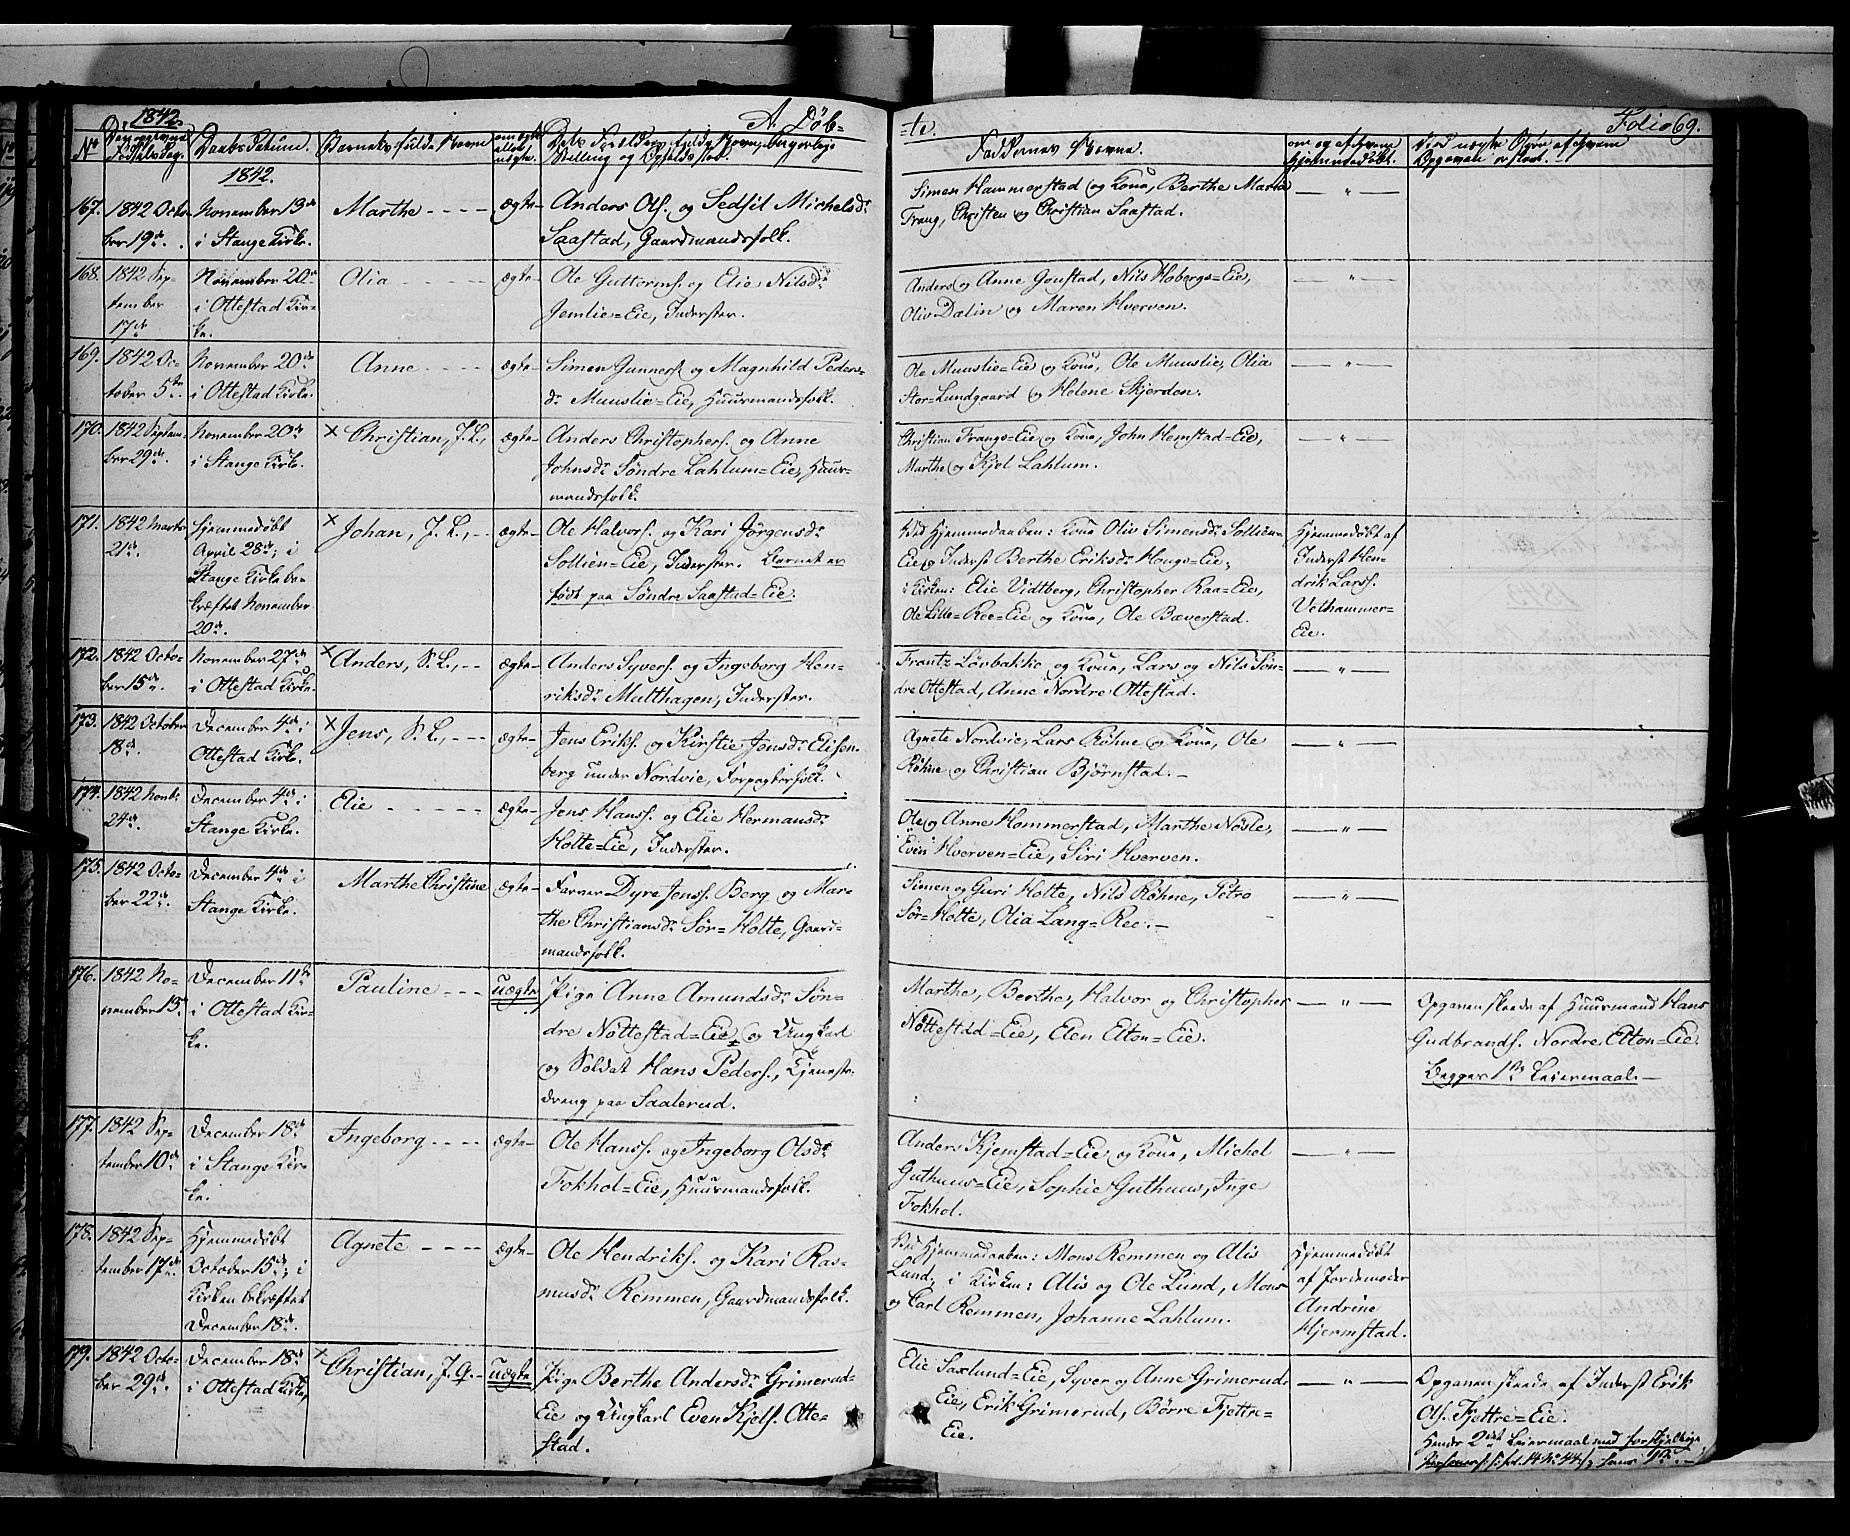 1842.
A. Døb-
-te.
Folio 69.
No
Daabs Datum.
Barnets fulde Navn
Faddernes Navne.
1842.
167. 1842 Octo-
ber 19de.
November 13de
i Stange Kirke.
Marthe - - - -
ægte-
Anders Ols. og Sedsil Michelsdr.
Saastad, Gaardmandsfolk.
Simen Hammerstad og Kone, Berthe Maria
Frang, Christen og Christian Saastad.
168. 1842 Sep-
tember
17de
November 20de
i Ottestad Kir-
ke.
Olia - - - - -
ægte-
Ole Guttorms. og Elie Nilsdr.
Jemlie=Eie, Inderster.
Anders og Anne Goustad, Nils Hobergs=Eie,
Oliv Dælin og Maren Hverven.
169. 1842 Oc-
tober 5te.
November 20de
i Ottestad Kirke.
Anne - - - -
ægte-
Simen Gunners. og Magnhild Peders-
dr. Muuslie=Eie, Huusmandsfolk.
Ole Muuslie=Eie og Kone, Ole Muuslie, Olia
Stor-Lundgaard og Helene Skjerden.
170. 1842 Septem-
ber 29de.
November 20de
i Stange Kirke.
× Christian, J. L.,
ægte-
Anders Christophers. og Anne
Johnsdr. Søndre Lahlum=Eie, Huus-
mandsfolk.
Christian Frangs=Eie og Kone, John Hemstad=Eie,
Marthe og Kjel Lahlum.
171. 1842 Marts
21de.
Hjemmedøbt
April 28de; i
Stange Kirke be-
kræftet November
20de.
× Johan, J. L., -
ægte-
Ole Halvors. og Kari Jörgensdr.
Sollien=Eie, Inderster. Barnet er
født paa Søndre Saastad=Eie.
Ved Hjemmedaaben: Kone Oliv Simensdr. Sollien=
Eie og Inderst Berthe Eriksdr. Hougs=Eie;
i Kirken: Elie Vidtberg, Christopher Raa=Eie,
Ole Lille=Ree=Eie og Kone, Ole Bæverstad.
Hjemmedøbt af
Inderst Hen-
drik Larss.
Vethammer-
Eie.
172. 1842 Octo-
ber 15de.
November 27de
i Ottestad Kirke.
× Anders, S. L., - -
ægte-
Anders Syvers. og Ingeborg Hen-
riksdr. Multhagen, Inderster.
Frantz Lövbakke og Kone, Lars og Nils Søn-
dre Ottestad, Anne Nordre Ottestad.
173. 1842 October
18de.
December 4de i
Ottestad Kirke.
× Jens, S. L., - - -
ægte-
Jens Eriks. og Kirstie Jensdr. Elisen-
berg under Nordvie, Forpagterfolk.
Agnete Nordvie, Lars Röhne og Kone, Ole
Röhne og Christian Bjørnstad. -
174. 1842 Novbr.
24de.
December 4de i
Stange Kirke.
Elie - - - - -
ægte-
Jens Hans. og Elie Hermansdr.
Holte=Eie, Inderster.
Ole og Anne Hommerstad, Marthe Nøsle,
Even Hverven=Eie, Siri Hverven.
175. 1842 Octo-
ber 22de.
December 4de i
Stange Kirke.
Marthe Christine
ægte-
Farver Dyre Jenss. Berg og Mar-
the Christiansdr. Sør=Holte, Gaard-
mandsfolk.
Simen og Guri Holte, Nils Röhne, Petro
Sør=Holte, Olia Lang=Ree. -
176. 1842 No-
vember 13.
December 11te
i Ottestad Kir-
ke.
Pauline - - -
uægte
Pige Anne Amundsdr. Søn-
dre Nöttestad=Eie og Ungkarl
og Soldat Hans Peders., Tjeneste-
dreng paa Saalerud.
Marthe, Berthe, Halvor og Christopher
Nöttestad=Eie, Elen Elton=Eie.
Opgaven skeede af Huusmand Hans
Gudbrands. Nordre Elton=Eie.
Begges 1ste Leiermaal. -
177. 1842 Sep-
tember 10de.
December 18de
i Stange Kir-
ke.
Ingeborg - - - -
ægte-
Ole Hanss. og Ingeborg Olsdr.
Fokhol=Eie, Huusmandsfolk.
Anders Kjemstad=Eie og Kone, Michel
Guthuus=Eie, Sophie Guthuus, Inge
Fokhol.
178. 1842 Sep-
tember 17de.
Hjemmedøbt
October 15de; i
Kirken bekræftet
December 18de.
Agnete - - - -
ægte-
Ole Hendriks. og Kari Ras-
musdr. Remmen, Gaardmandsfolk.
Ved Hjemmedaaben: Mons Remmen og Alis
Lund; i Kirken: Alis og Ole Lund, Mons
og Carl Remmen, Johanne Lahlum.
Hjemmedøbt
af Jordemoder
Andrine
Hjermstad.
179. 1842 Octo-
ber 29de.
December 18de
i Ottestad Kirke,
× Christian, J. G. -
uægte
Pige Berthe Andersdr. Grimerud=
Eie og Ungkarl Even Kjels. Otte-
stad.
Elie Saxlund=Eie, Syver og Anne Grimerud=
Eie, Erik Grimerud, Börre Fjettre=
Eie.
Opgaven skeede af Inderst Erik
Ols. Fjettre=Eie.
Hendes 2det Leiermaal med forskjellige